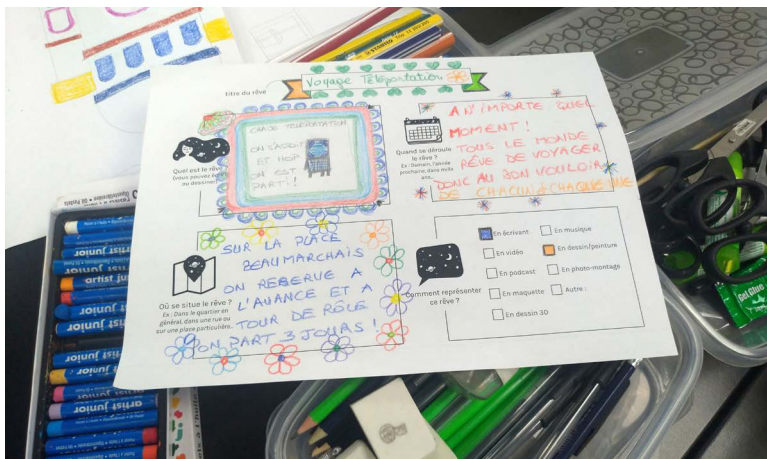 titre du rêve
Voyage Téléportation
Quel est le rêve
(vous pouvez écri
ou dessiner)
CHAISE TELEPORTATION
ON S'ASSOIT
ET HOP
ON EST
PARTI!
Quand se déroule
le rêve ?
Ex : Demain, l'année
prochaine, dans mille
ans...
A N'IMPORTE QUEL
MOMENT !
TOUS LE MONDE
RÊVE DE VOYAGER
DONC AU BON VOULOIR
DE CHACUN & CHAQUE UNE
Où se situe le rêve ?
Ex : Dans le quartier en
général, dans une rue ou
sur une place particulière..
SUR LA PLACE
BEAUMARCHAIS
ON RESERVE A
L'AVANCE ET A
TOUR DE RÔLE
ON PART 3 JOURS !
Comment représenter
ce rêve ?
En écrivant
En musique
En vidéo
En dessin/peinture
En podcast
En photo-montage
En maquette
Autre :
En dessin 3D
artist
junior
junior artist
Gel Glue